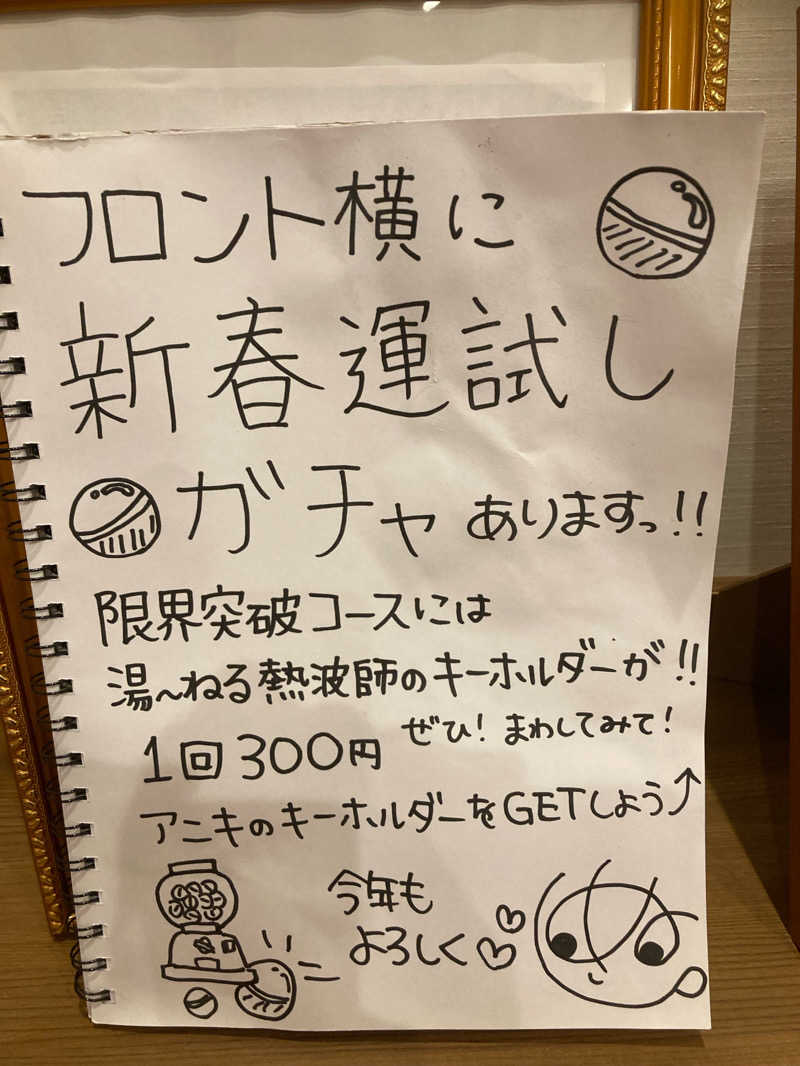 フロント横に
新春運試し
ガチャ ありますっ!!
限界突破コースには
湯〜ねる熱波師のキーホルダーが!!
ぜひ! まわしてみて!
1回300円
アニキのキーホルダーをGETしよう↑
今年も
よろしく♡♡